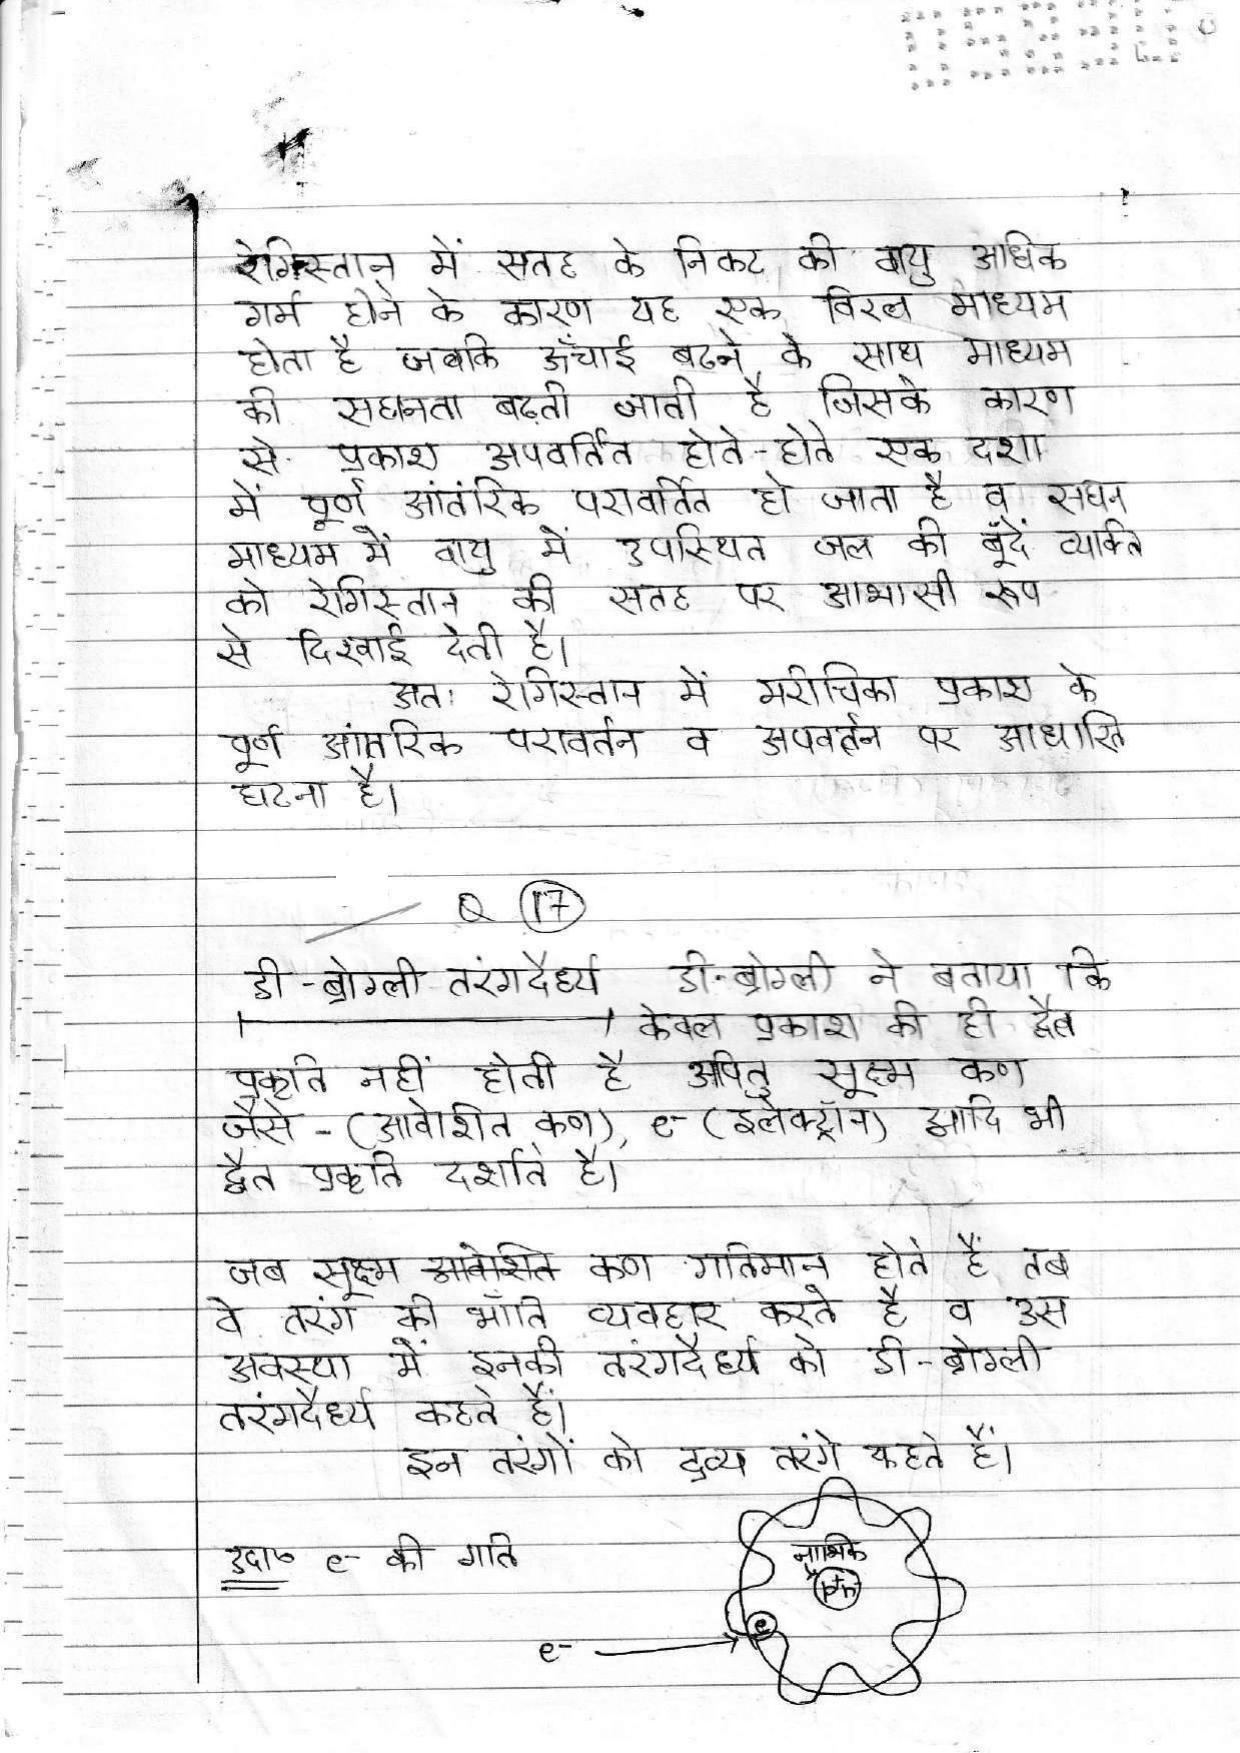 रेगिस्तान में सतह के निकट की वायु अधिक
गर्म होने के कारण यह एक विरल माध्यम
होता है जबकि ऊँचाई बढने के साथ माध्यम
की सघनता बढ़ती जाती है जिसके कारण
से प्रकाश अपवर्तित होते-होते एक दशा
में पूर्ण आंतंरिक परावर्तित हो जाता है व सघन
माध्यम में वायु में उपस्थित जल की बूँदें व्यक्ति
को रेगिस्तान की सतह पर आभासी रूप
से दिखाई देती है।
अतः रेगिस्तान में मरीचिका प्रकाश के
पूर्ण आंतरिक परावर्तन व अपवर्तन पर आधारित
घटना है।
Q (17)
डी-ब्रोग्ली तरंगदैर्ध्य डी-ब्रोग्ली ने बताया कि
केवल प्रकाश की ही द्वैत
प्रकृति नहीं होती है अपितु सूक्ष्म कण
जैसे - (आवेशित कण), e- (इलेक्ट्रॉन) आदि भी
द्वैत प्रकृति दर्शाते है।
जब सूक्ष्म आवेशित कण गतिमान होते हैं तब
वे तरंग की भाँति व्यवहार करते है व उस
अवस्था में इनकी तरंगदैर्ध्य को डी-ब्रोग्ली
तरंगदैर्ध्य कहते हैं।
इन तरंगों को द्रव्य तरंगे कहते हैं।
उदा० e- की गति
नाभिक
p+n
e
e-